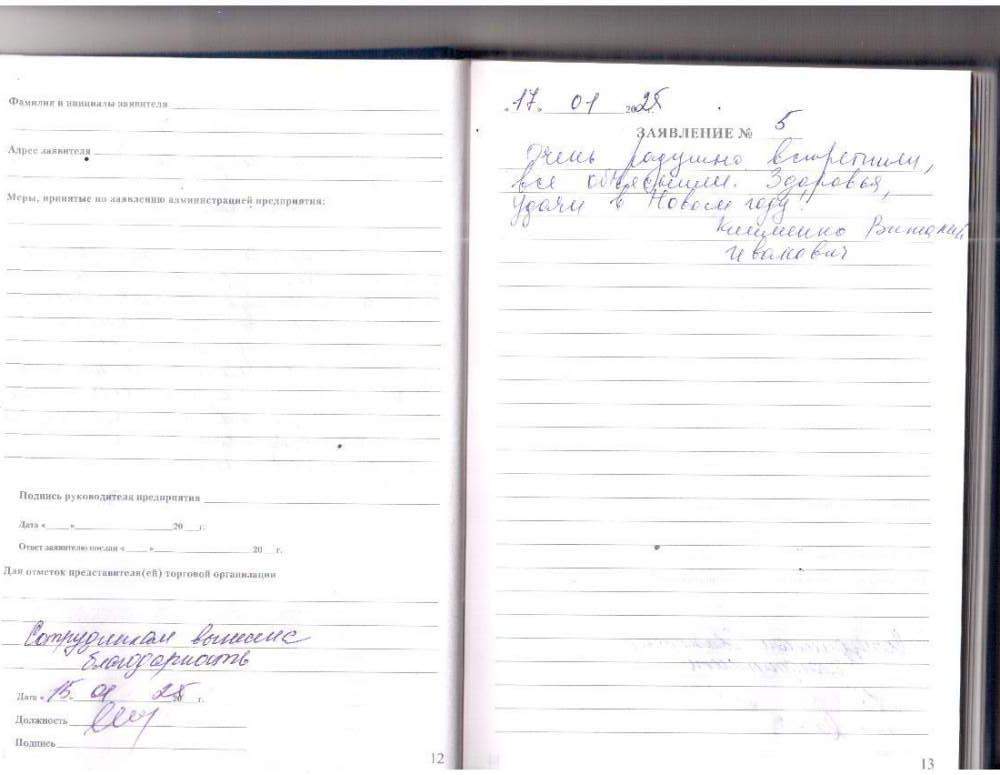 Фамилия и инициалы заявителя
Адрес заявителя
Меры, принятые по заявлению администрацией предприятия:
Подпись руководителя предприятия
Дата « » 20 г.
Ответ заявителю послан « » 20 г.
Для отметок представителя(ей) торговой организации
Сотрудникам вынести
благодарность
Дата « 15 » 01 2025 г.
Должность
Подпись
12
« 17 » 01 2025 г.
ЗАЯВЛЕНИЕ № 5
Очень радушно встретили,
все объяснили. Здоровья,
Удачи в Новом году!
Клименко Виталий
Иванович
13